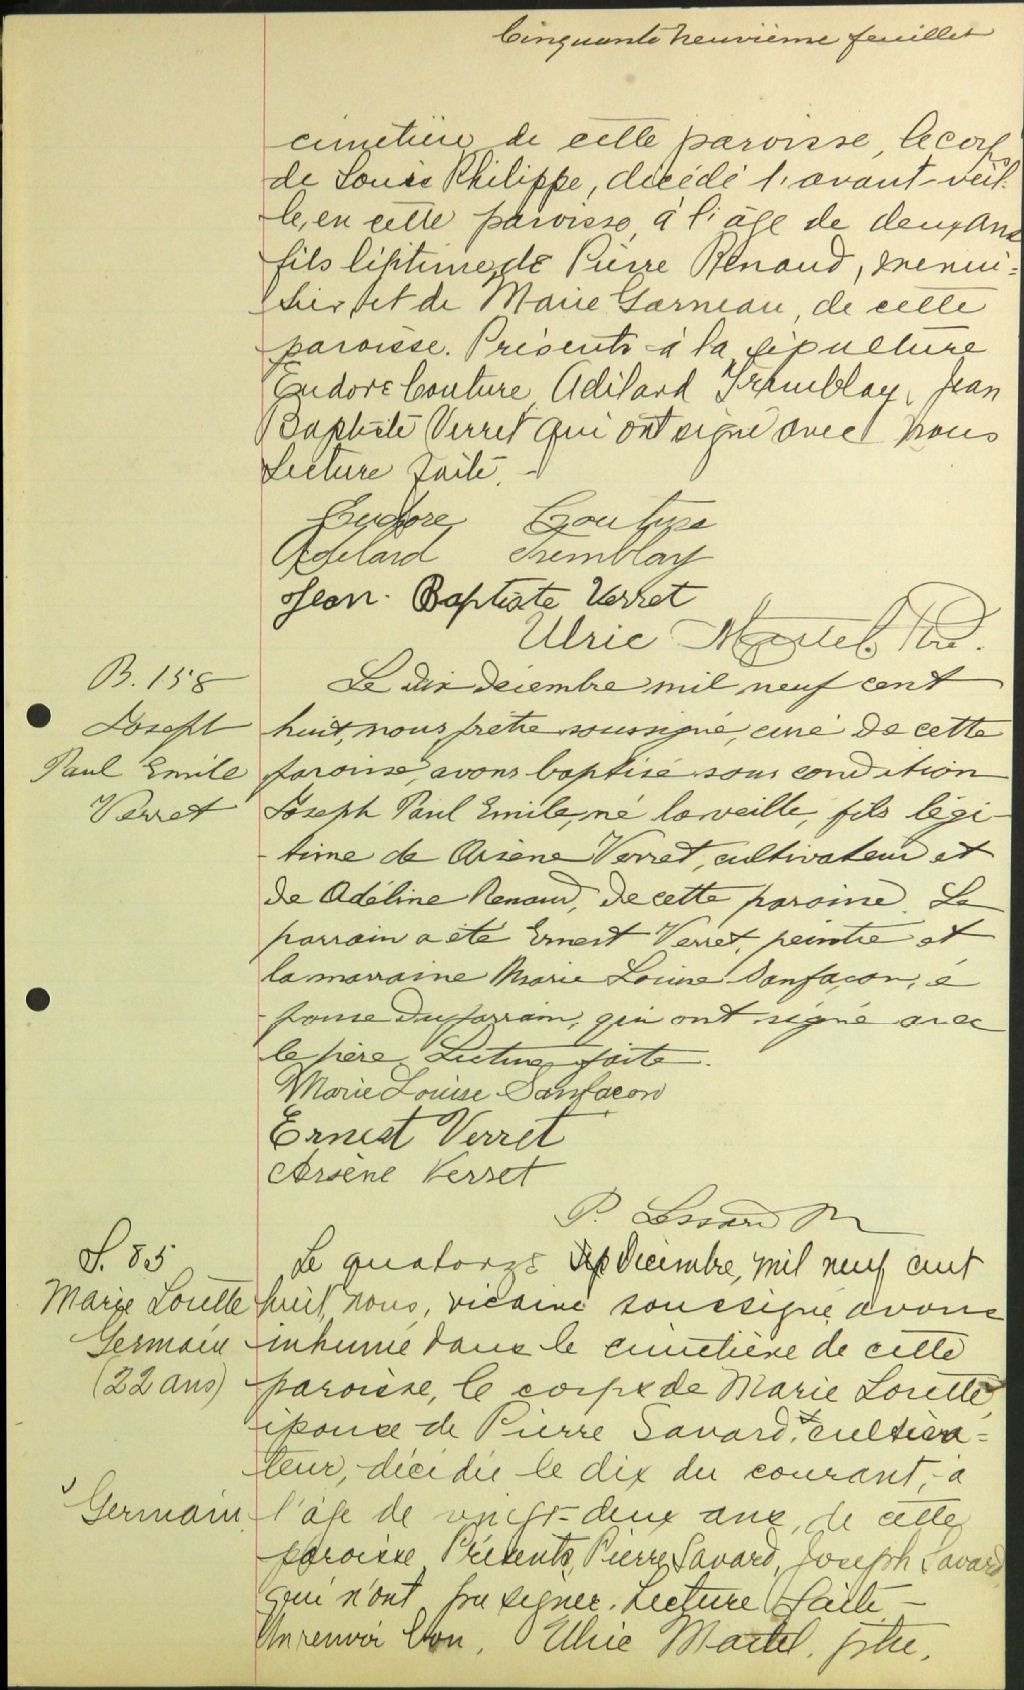 Cinquante neuvième feuillet
cimetière de cette paroisse, le corps
de Louis Philippe, décédé l'avant-veil-
le, en cette paroisse, à l'âge de deux ans
fils légitime de Pierre Renaud, menui=
sier, et de Marie Garneau, de cette
paroisse. Présents à la sépulture
Eudore Couture, Adélard Tremblay, Jean
Baptiste Verret qui ont signé avec nous
Lecture faite. -
Eudore Couture
Adelard Tremblay
Jean-Baptiste Verret
Ulric Martel Ptre.
B. 158
Joseph
Paul Emile
Verret
Le dix décembre mil neuf cent
huit, nous prêtre soussigné, curé de cette
paroisse, avons baptisé sous condition
Joseph Paul Emile, né la veille, fils légi-
-time de Arsène Verret, cultivateur et
de Adéline Renaud, de cette paroisse. Le
parrain a été Ernest Verret, peintre et
la marraine Marie Louise Sanfaçon, é
-pouse du parrain, qui ont signé avec
le père. Lecture faite.
Marie Louise Sanfacon
Ernest Verret
Arsène Verret
P. Lessard
S. 85
Marie Lorette
Germain
(22 ans)
Le quatorze décembre, mil neuf cent
huit, nous, vicaire soussigné, avons
inhumé dans le cimetière de cette
paroisse, le corps de Marie Lorette,
épouse de Pierre Savard, cultiva=
teur, décédée le dix du courant, à
Germain
l'âge de vingt-deux ans, de cette
paroisse. Présents, Pierre Savard, Joseph Savard
qui n'ont pu signer. Lecture faite -
Un renvoi bon. Ulric Martel, ptre.